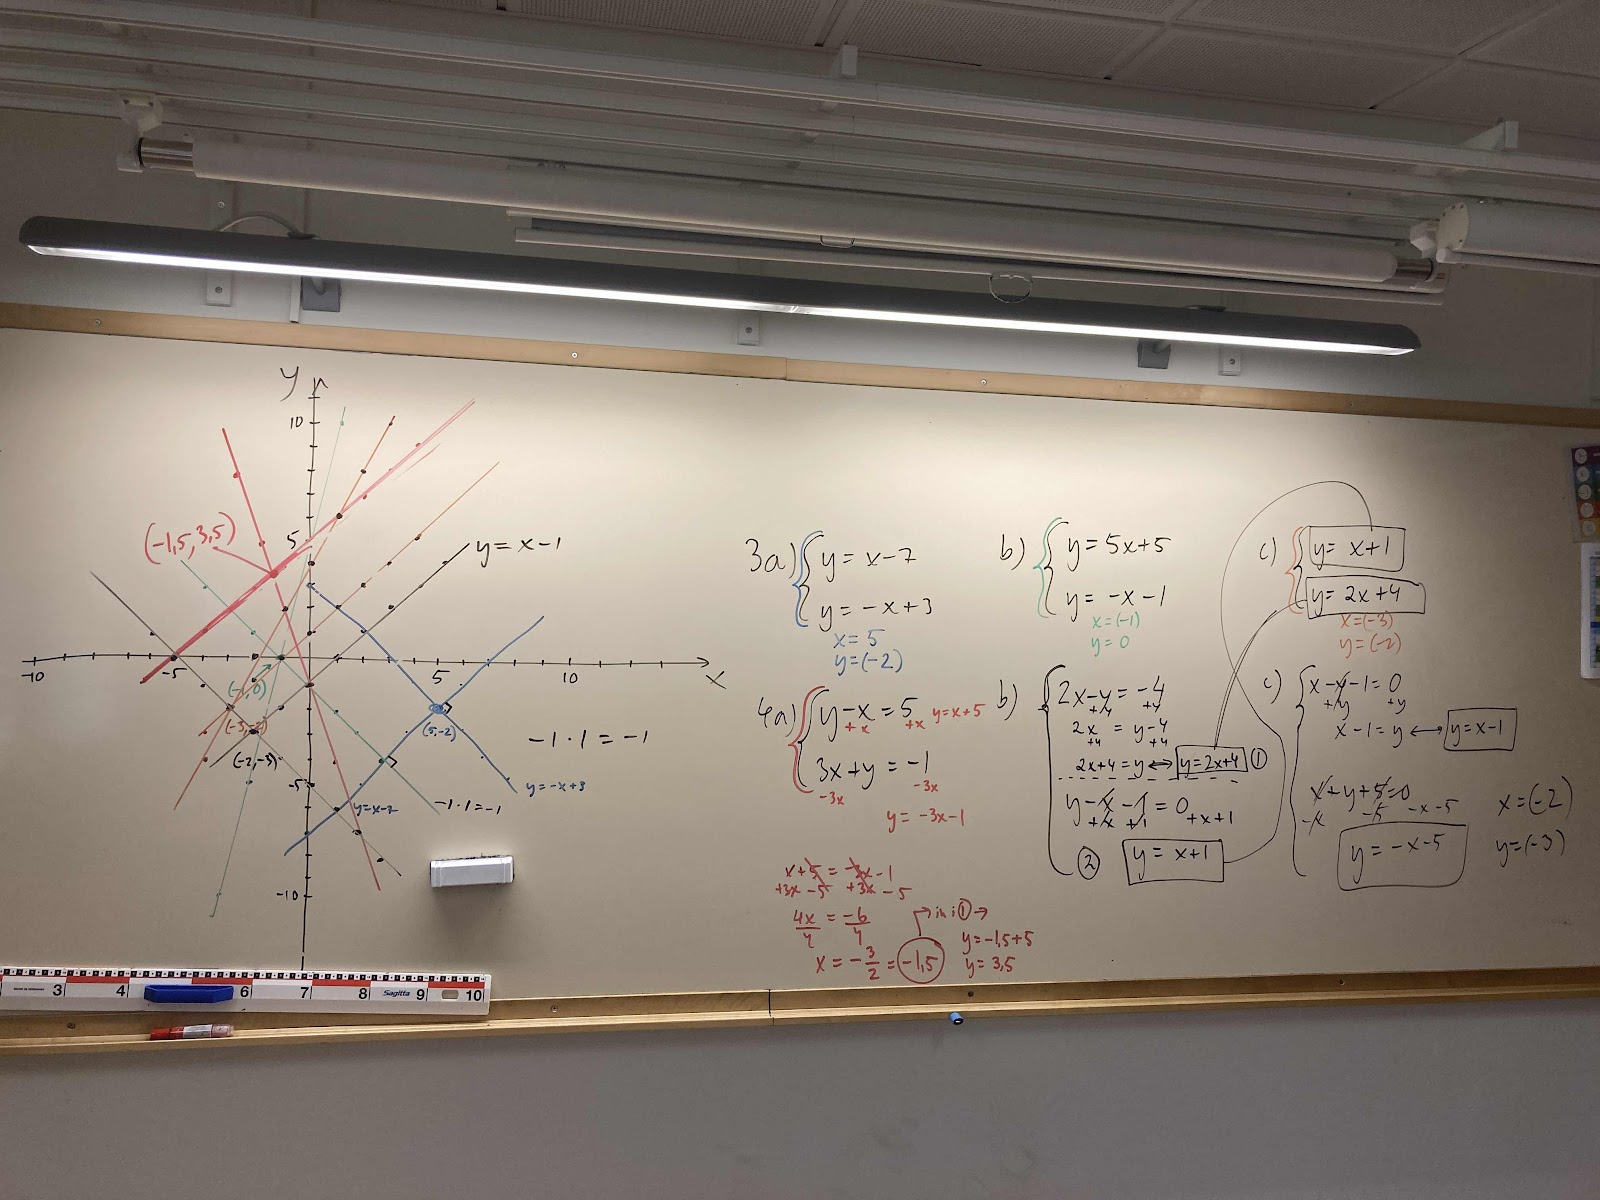 y
10
(-1,5, 3,5)
5
y = x-1
-10
-5
5
10
x
(-1,0)
(-2,-3)
(5,-2)
-1 · 1 = -1
y=-x+3
-5
y=x-7
-1·1=-1
-10
3a) y = x-7
y = -x+3
x = 5
y=(-2)
b) y = 5x+5
y = -x-1
x=(-1)
y=0
c) y = x+1
y = 2x+4
x=(-3)
y=(-2)
4a) y-x = 5 y=x+5
+x +x
3x+y = -1
-3x -3x
y = -3x-1
x+5 = -3x-1
+3x-5 +3x-5
4x/4 = -6/4
x = -3/2 = -1,5
in i ① →
y=-1,5+5
y=3,5
b) 2x-y = -4
+y +y
2x = y-4
+4 +4
2x+4=y ↔ y=2x+4 ①
y-x-1 = 0
+x +1 +x+1
② y = x+1
c) x-y-1=0
+y +y
x-1=y ↔ y=x-1
x+y+5=0
-x -5 -x-5
y = -x-5
x=(-2)
y=(-3)
3 4 6 7 8 Sagitta 9 10